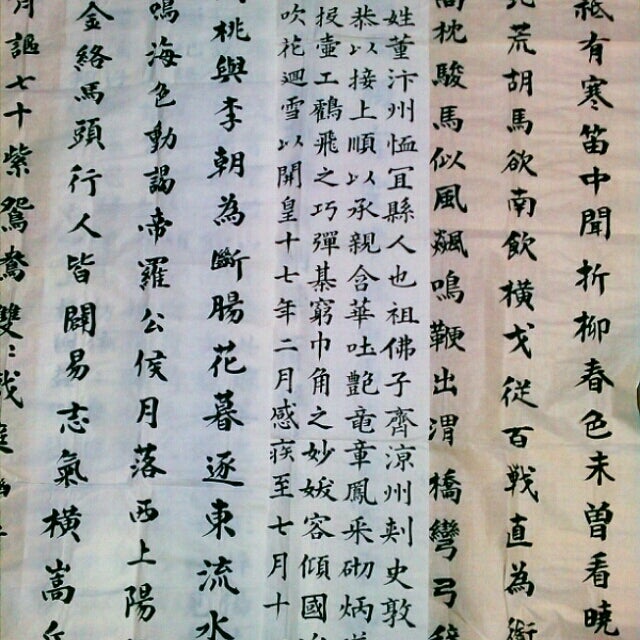 祗有寒笛中聞折柳春色未曾看曉
荒胡馬欲南飲橫戈從百戰直為銜
枕駿馬似風飆鳴鞭出渭橋彎弓
姓董汴州恤宜縣人也祖佛子齊涼州刺史敦
恭以接上順以承親含華吐艶竜章鳳采砌炳
投壺工鶴飛之巧彈棊窮巾角之妙妭容傾國
吹花迴雪以開皇十七年二月感疾至七月十
桃與李朝為斷腸花暮逐東流水
鳴海色動謁帝羅公侯月落西上陽
金絡馬頭行人皆闢易志氣橫嵩
月謳七十紫鴛鴦雙〻戲庭